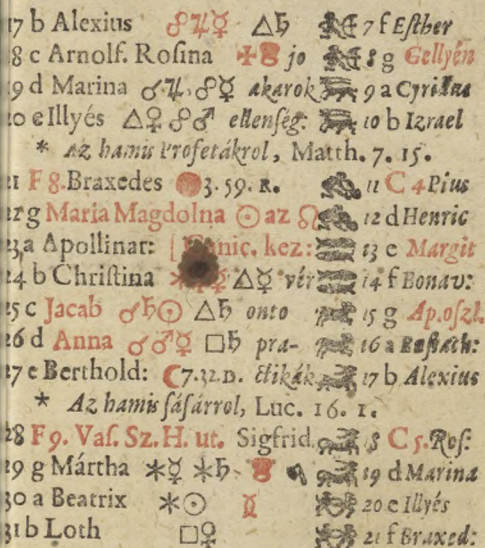 17 b Alexius ☍♃☿ △♄ 7 f Eſther
18 c Arnolf. Roſina ✠ jo 8 g Gellyén
19 d Marina ♂♃, ☍☿ akarok 9 a Cyrillus
20 e Illyés △♀ ☍♂ ellenſég: 10 b Izrael
* Az hamis Profetákrol, Matth. 7. 15.
21 F 8. Braxedes 3. 59. R. 11 C 4 Pius
22 g Maria Magdolna ☉ az ♌ 12 d Henric
23 a Apollinar: [ kez: 13 e Margit
24 b Chriſtina △☿ vér 14 f Bonav:
25 c Jacab ☌♄☉ △♄ onto 15 g Ap. oſzl.
26 d Anna ♂♂☿ □♄ pra- 16 a
27 e Berthold: ☾ 7. 32. D. ctikák 17 b Alexius
* Az hamis ſáfárrol, Luc. 16. 1.
28 F 9. Vaſ. Sz. H. ut. Sigfrid. 18 C 5. Roſ:
29 g Mártha ✶☿ ✶♄ 19 d Marina
30 a Beatrix ✶☉ 20 e Illyés
31 b Loth □♀ 21 f Braxed: